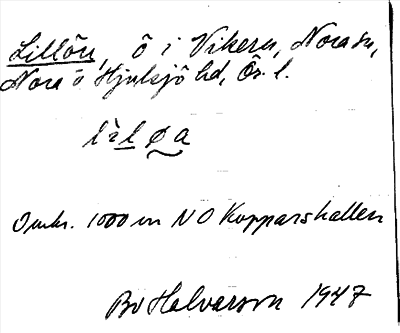 Lillön, ö i Vikern, Nora sn,
Nora o Hjulsjö hd, Ör. l.
lìløa
Omkr. 1000 m NO Kopparshällen
Bo Halvarson 1947